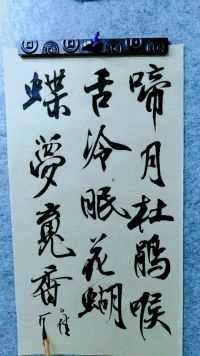 啼月杜鹃喉
舌冷眠花蝴
蝶梦魂香